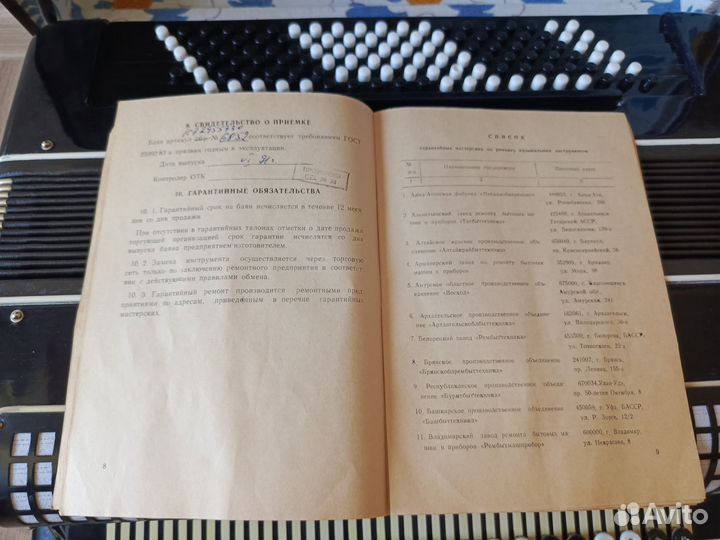 9. СВИДЕТЕЛЬСТВО О ПРИЕМКЕ
Баян артикул № 6852 соответствует требованиям ГОСТ
и признан годным к эксплуатации.
Дата выпуска VI 91г.
Контролер ОТК
10. ГАРАНТИЙНЫЕ ОБЯЗАТЕЛЬСТВА
10. 1. Гарантийный срок на баян исчисляется в течение 12 меся-
цев со дня продажи.
При отсутствии в гарантийных талонах отметки о дате продажи
торгующей организацией срок гарантии исчисляется со дня
выпуска баяна предприятием изготовителем.
10. 2. Замена инструмента осуществляется через торговую
сеть только по заключению ремонтного предприятия в соответст-
вии с действующими правилами обмена.
10. 3. Гарантийный ремонт производится ремонтными пред-
приятиями по адресам, приведенным в перечне гарантийных
мастерских.
8
СПИСОК
гарантийных мастерских по ремонту музыкальных инструментов
№ п.п. Наименование предприятия Почтовый адрес
1 2 3
1. Алма-Атинская фабрика г. Алма-Ата,
ул.
2. Альметьевский завод ремонту бытовых ма- г. Альметьевск
шин и приборов «Татбыттехника» Татарской АССР,
ул. Белоглазова, 151
3. Алтайское краевое производственное объ- г. Барнаул,
единение «Алтайкрайбыттехника» пр. Красноармейский, 36
4. Армавирский завод по ремонту бытовых 352900, г. Армавир,
машин и приборов ул.
5. Амурское областное производственное объ- 675000, г. Благовещенск
единение «Восход» Амурской обл.,
ул. Амурская, 241
6. Архангельское производственное объедине- 163061, г. Архангельск,
ние «Архангельскоблбыттехника» ул. Володарского,
7. Белорецкий завод «Рембыттехника» г. Белорецк, БАССР,
ул. Точисского, 23-а
8. Брянское производственное объединение 241007, г. Брянск,
«Брянскоблрембыттехника» пр. Ленина,
9. Республиканское производственное объеди- 670034, Улан-Удэ,
нение «Бурятбыттехника» пр. 50-летия Октября, 8
10. Башкирское производственное объединение 450059, г. Уфа, БАССР,
«Башбыттехника» ул. Р. Зорге, 12/2
11. Владимирский завод ремонта бытовых ма- 600000, г. Владимир,
шин и приборов «Рембытмашприбор» ул. Некрасова, 8
9
Avito